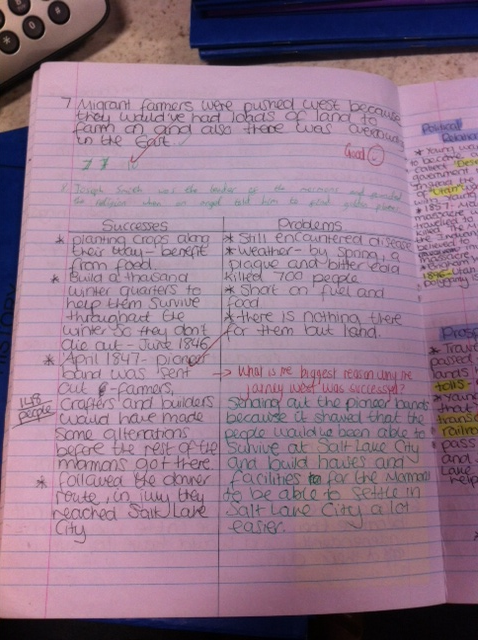 7 Migrant farmers were pushed west because
they would've had loads of land to
farm on and also there was
in the East.
Good
* Joseph Smith was the leader of the mormons and
the religion when an angel told him to
Successes
* planting crops along
their way - benefit
from food
* Build a thousand
winter quarters to
help them survive
throughout the
winter so they dont
die out - June 1846
* April 1847 - pioneer
band was sent
out - farmers,
148
people
crafters and builders
would have made
some alterations
before the rest of the
mormons got there.
* followed the donner
route, in July they
reached Salt Lake
City
Problems
* Still encountered disease
* Weather - by Spring, a
plague and bitter cold
killed 700 people
* Short on fuel and
food
* there is nothing there
for them but land.
→ What is the biggest reason why the
journey west was successful?
Sending out the pioneer bands
because it showed that the
people would've been able to
survive at Salt Lake City
and build houses and
facilities for the Mormons
to be able to settle in
Salt Lake City a lot
easier.
Political
* Young
to become
government
* 1857
tolls
railroad
pass
and
Lake
help